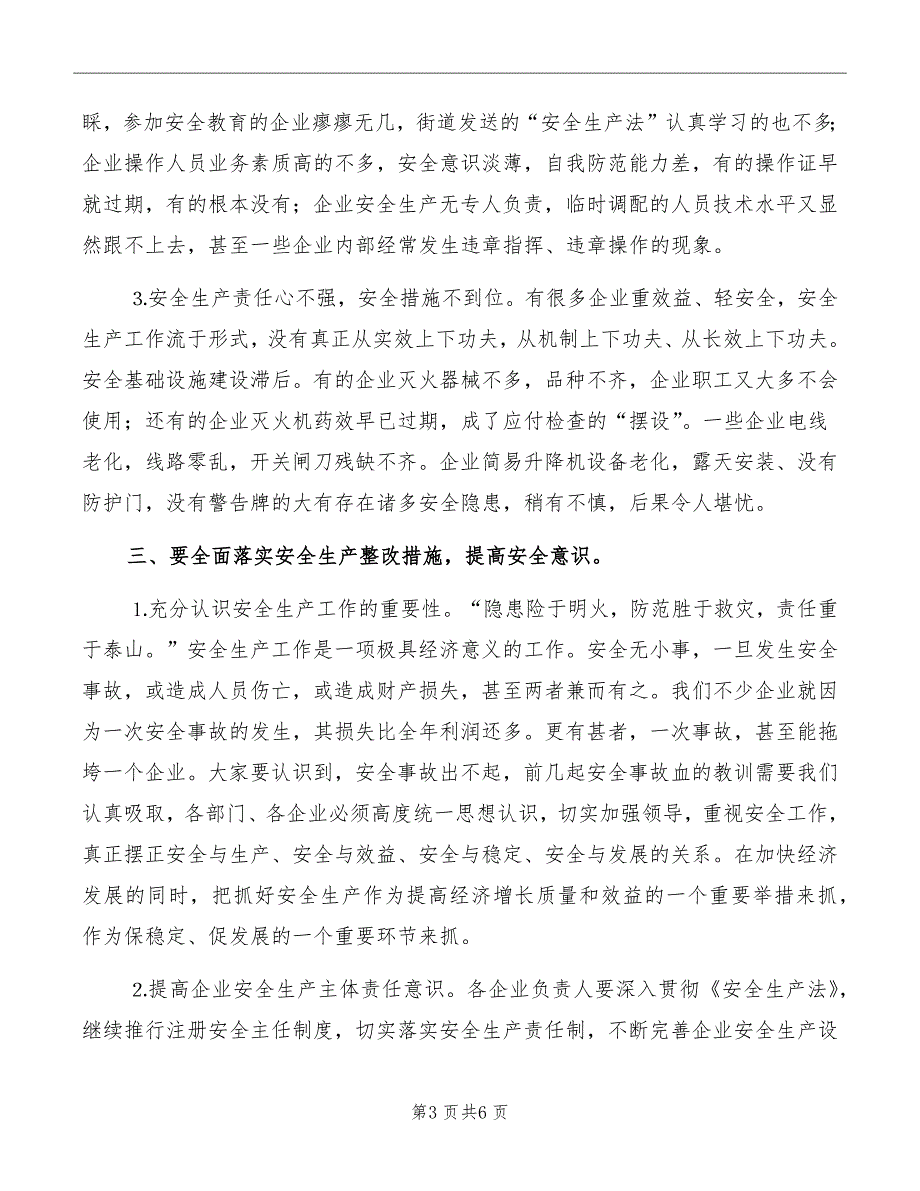 睬，参加安全教育的企业瘳瘳无几，街道发送的“安全生产法”认真学习的也不多；
企业操作人员业务素质高的不多，安全意识淡薄，自我防范能力差，有的操作证早
就过期，有的根本没有；企业安全生产无专人负责，临时调配的人员技术水平又显
然跟不上去，甚至一些企业内部经常发生违章指挥、违章操作的现象。
3.安全生产责任心不强，安全措施不到位。有很多企业重效益、轻安全，安全
生产工作流于形式，没有真正从实效上下功夫，从机制上下功夫、从长效上下功夫。
安全基础设施建设滞后。有的企业灭火器械不多，品种不齐，企业职工又大多不会
使用；还有的企业灭火机药效早已过期，成了应付检查的“摆设”。一些企业电线
老化，线路零乱，开关闸刀残缺不齐。企业简易升降机设备老化，露天安装、没有
防护门，没有警告牌的大有存在诸多安全隐患，稍有不慎，后果令人堪忧。
三、要全面落实安全生产整改措施，提高安全意识。
1.充分认识安全生产工作的重要性。“隐患险于明火，防范胜于救灾，责任重
于泰山。”安全生产工作是一项极具经济意义的工作。安全无小事，一旦发生安全
事故，或造成人员伤亡，或造成财产损失，甚至两者兼而有之。我们不少企业就因
为一次安全事故的发生，其损失比全年利润还多。更有甚者，一次事故，甚至能拖
垮一个企业。大家要认识到，安全事故出不起，前几起安全事故血的教训需要我们
认真吸取，各部门、各企业必须高度统一思想认识，切实加强领导，重视安全工作，
真正摆正安全与生产、安全与效益、安全与稳定、安全与发展的关系。在加快经济
发展的同时，把抓好安全生产作为提高经济增长质量和效益的一个重要举措来抓，
作为保稳定、促发展的一个重要环节来抓。
2.提高企业安全生产主体责任意识。各企业负责人要深入贯彻《安全生产法》，
继续推行注册安全主任制度，切实落实安全生产责任制，不断完善企业安全生产设
第3 页共6 页